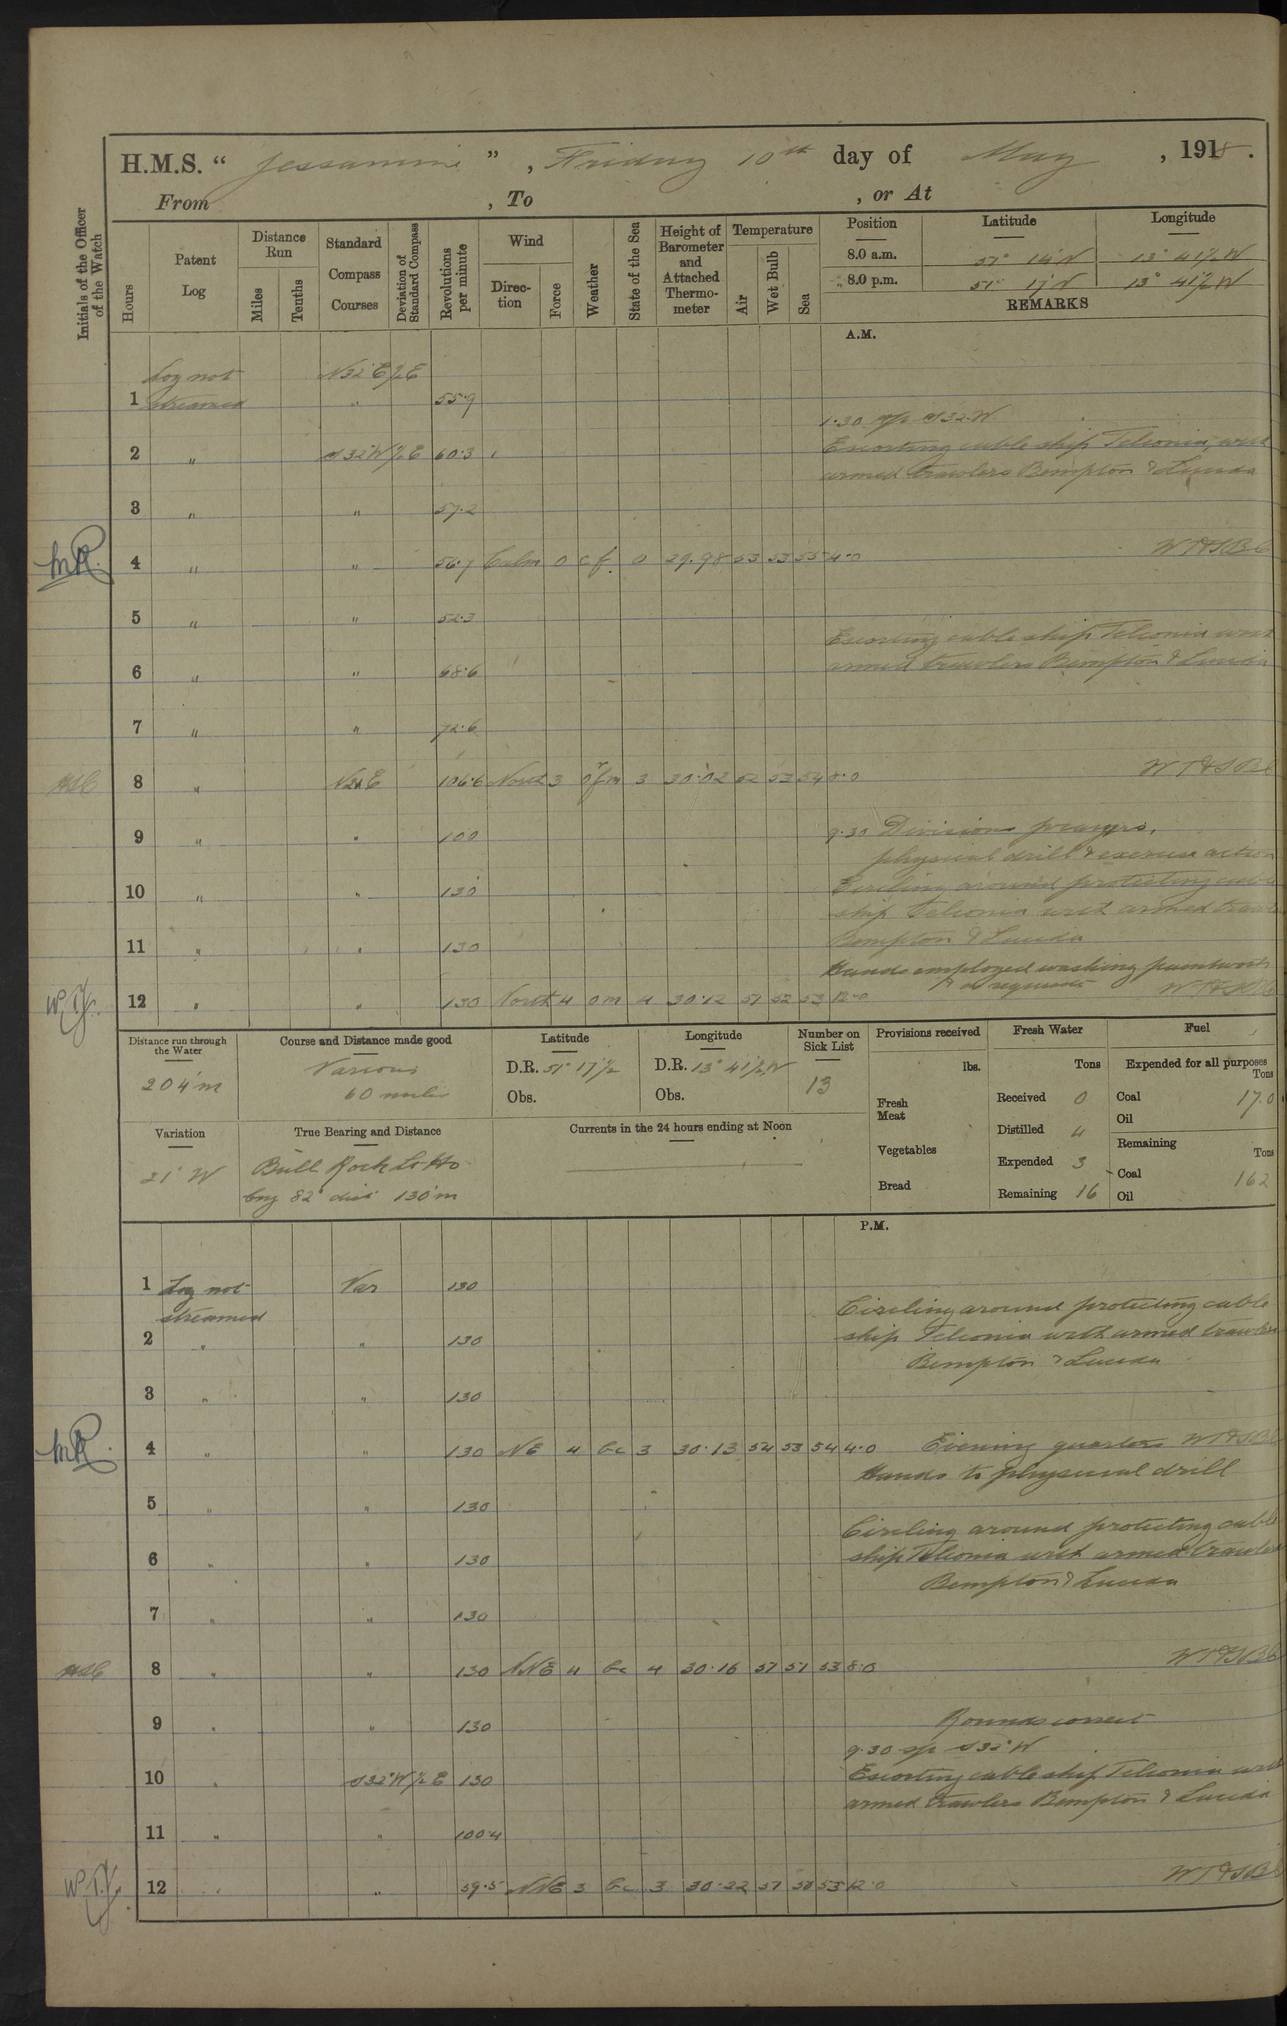 H.M.S. “ Jessamine ” , Friday 10th day of May , 1918 .
From , To , or At
Initials of the Officer of the Watch
Hours
Patent Log
Distance Run
Miles
Tenths
Standard Compass Courses
Deviation of Standard Compass
Revolutions per minute
Wind
Direction
Force
Weather
State of the Sea
Height of Barometer and Attached Thermometer
Temperature
Air
Wet Bulb
Sea
Position Latitude Longitude
8.0 a.m. 51° 14' N 13° 41½ W
8.0 p.m. 51° 17' N 13° 41½ W
REMARKS
A.M.
Log not N32°E ½E
1 streamed " 55.9
1.30 a/c S32°W
2 " S32°W ½E 60.3 Escorting cable ship Telconia with
armed trawlers Bempton & Lucida
3 " " 57.2
4 " " 56.7 Calm 0 c f 0 29.98 53 53 55 4.0
5 " " 52.3
Escorting cable ship Telconia with
6 " " 68.6 armed trawlers Bempton & Lucida
7 " " 72.6
8 " 106.6 North 3 3 30.02 52 52 54 8.0
9 " " 100 9.30 Divisions prayers,
physical drill & exercise action
10 " " 130 Circling around protecting cable
ship Telconia with armed
11 " " 130 Bempton & Lucida
Hands employed washing paintwork
& as requisite
12 " " 130 North 4 o m 4 30.12 51 52 53 12.0
Distance run through the Water
204 m
Course and Distance made good
Various
60 miles
Latitude
D.R. 51° 17½
Obs.
Longitude
D.R. 13° 41½ W
Obs.
Number on Sick List
13
Provisions received
lbs.
Fresh Meat
Vegetables
Bread
Fresh Water
Tons
Received 0
Distilled 4
Expended 3
Remaining 16
Fuel
Expended for all purposes
Tons
Coal 17.0
Oil
Remaining
Tons
Coal 162
Oil
Variation
21° W
True Bearing and Distance
Bull Rock Lt Ho
brg 82° dist 130 m
Currents in the 24 hours ending at Noon
P.M.
1 Log not Var 130
streamed Circling around protecting cable
2 " " 130 ship Telconia with armed trawlers
Bempton & Lucida
3 " " 130
4 " " 130 NE 4 bc 3 30.13 52 53 54 4.0 Evening quarters
Hands to physical drill
5 " " 130
Circling around protecting cable
6 " " 130 ship Telconia with armed trawlers
Bempton & Lucida
7 " " 130
8 " " 130 NNE 4 bc 4 30.16 51 51 53 8.0
9 " " 130 Rounds correct
9.30 a/c S32°W
10 " S32°W ½E 130 Escorting cable ship Telconia with
armed trawlers Bempton & Lucida
11 " " 100.4
12 " " 59.5 NNE 3 bc 3 30.22 51 50 53 12.0